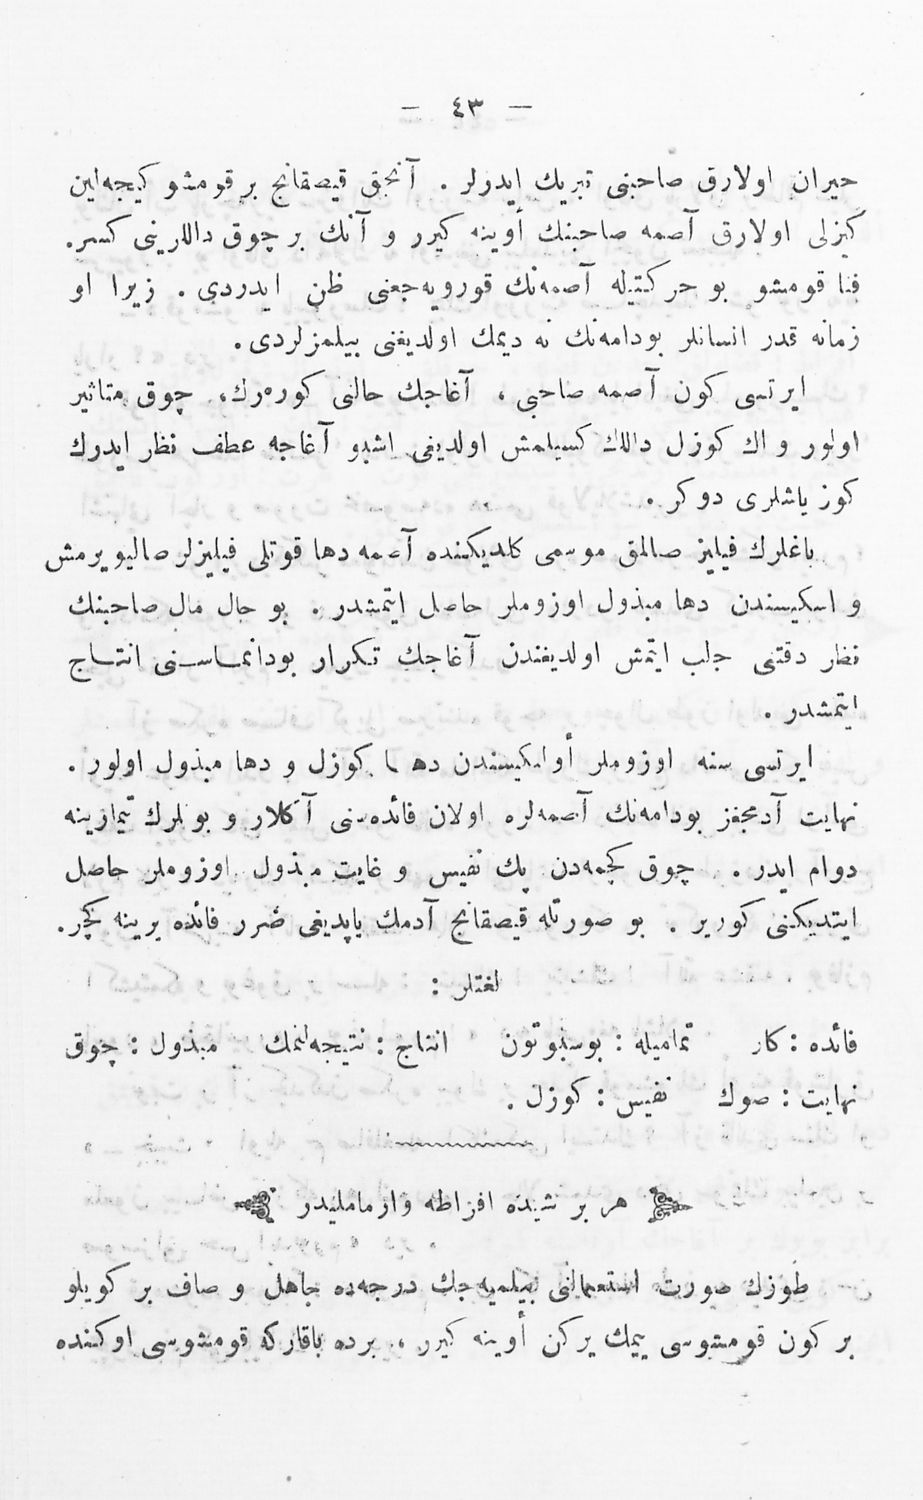 — ٤٣ —
حیران اولارق صاحبنی تبریك ایدرلر . آنجق قیصقانج بر قومشو كیجه‌لین
كیزلی اولارق آصمه صاحبنك أوینه كیرر و آنك بر چوق داللرینی كسر.
فنا قومشو بو حركتیله آصمه‌نك قورویه‌جغنی ظن ایدردی . زیرا او
زمانه قدر انسانلر بودامه‌نك نه دیمك اولدیغنی بیلمزلردی.
ایرتسی كون آصمه صاحبی ، آغاجك حالنی كوره‌رك، چوق متاثیر
اولور و اك كوزل داللك كسیلمش اولدیغی اشبو آغاجه عطف نظر ایدرك
كوز یاشلری دوكر .
باغلرك فیلیز صالمق موسمی كلدیكنده آصمه دها قوتلی فیلیزلر صالیویرمش
و اسكیسندن دها مبذول اوزوملر حاصل ایتمشدر . بو حال مال صاحبنك
نظر دقتنی جلب ایتمش اولدیغندن آغاجك تكرار بودانماسنی انتاج
ایتمشدر .
ایرتسی سنه اوزوملر أولكیسندن دها كوزل و دها مبذول اولور .
نهایت آدمجغز بودامه‌نك آصمه‌لره اولان فائده‌سنی آكلار و بونلرك تیمارینه
دوام ایدر . چوق كچمه‌دن پك نفیس و غایت مبذول اوزوملر حاصل
ایتدیكنی كوریر . بو صورتله قیصقانج آدمك یاپدیغی ضرر فائده یرینه كچر.
لغتلر :
فائده : كار تمامیله : بوسبوتون انتاج : نتیجه‌لنمك مبذول : چوق
نهایت : صوك نفیس : كوزل .
هر بر شیئده افراطه وارمامالیدر
طوزك صورت استعمالنی بیلمیه‌جك درجه‌ده جاهل و صاف بر كویلو
بر كون قومشوسی ییمك یركن أوینه كیرر ، برده باقاركه قومشوسی اوكنده